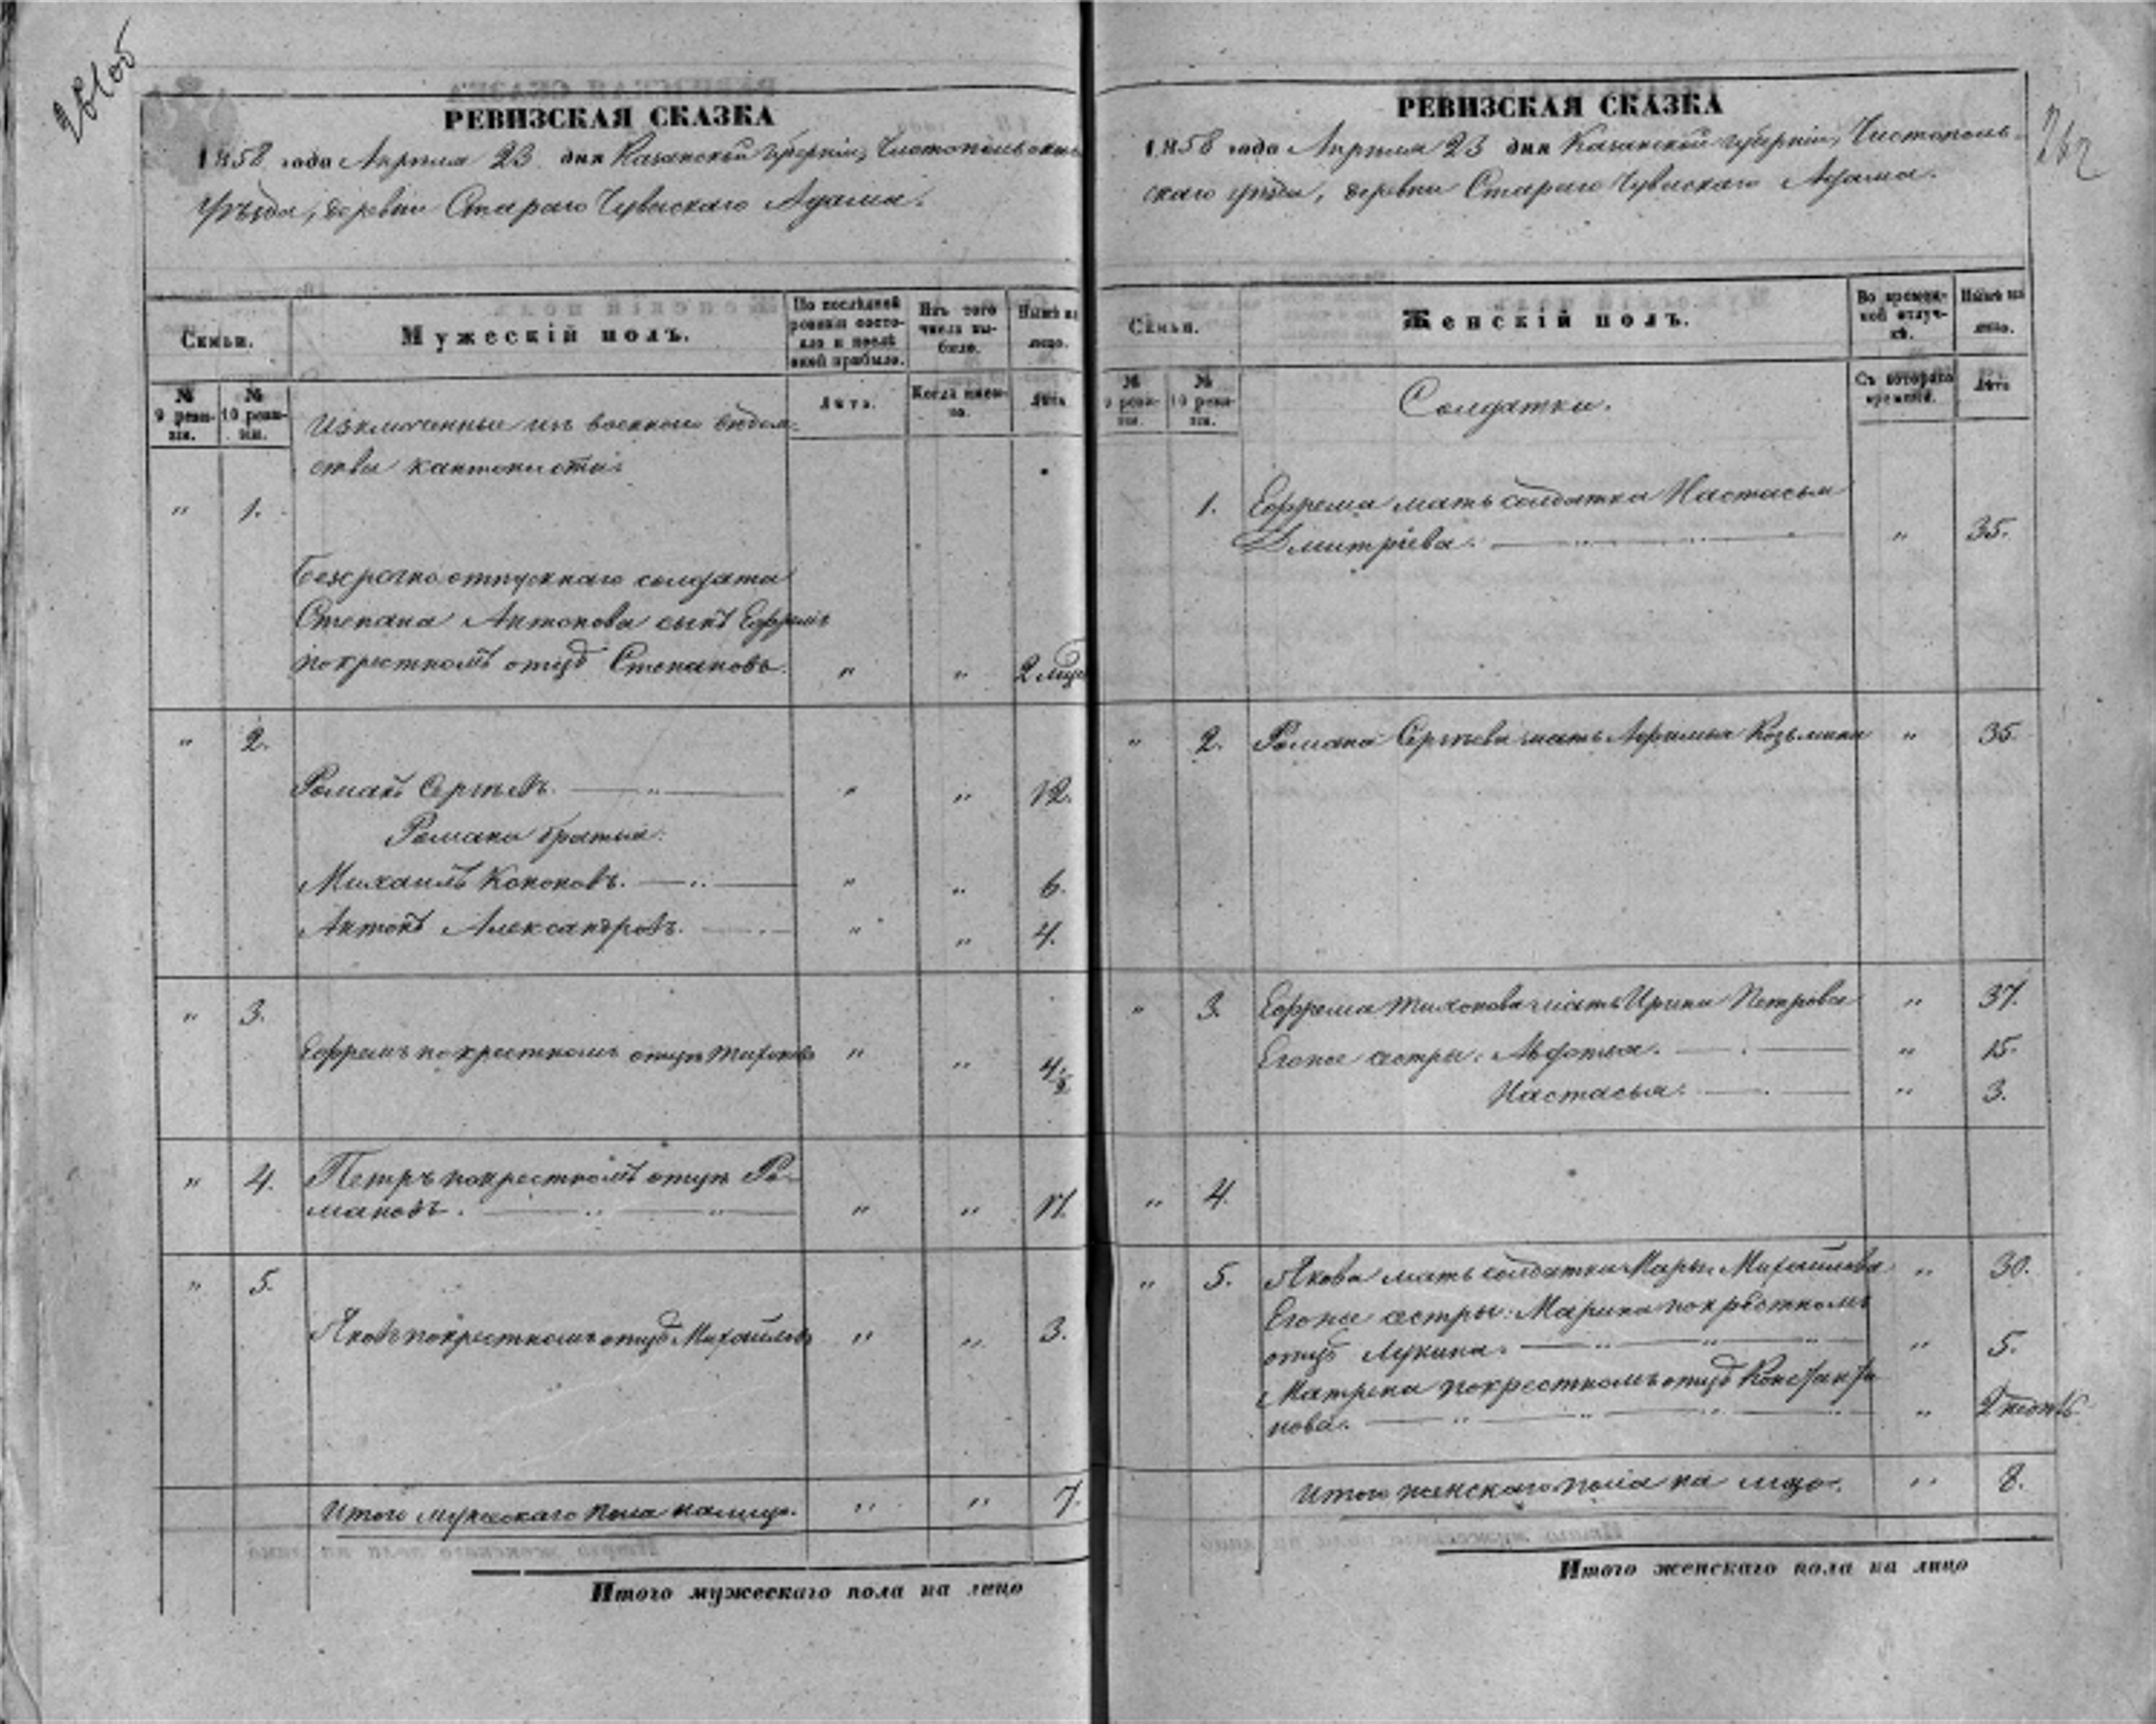 261об
РЕВИЗСКАЯ СКАЗКА
1858 года Апреля 23 дня Казанской губернiи, Чистопольскаго
уѣзда, деревни Стараго Чуваскаго Адама.
Семьи.
Мужескiй полъ.
По послѣдней ревизiи состояло и послѣ оной прибыло.
Изъ того числа выбыло.
Нынѣ на лицо.
№ 9 ревизiи.
№ 10 ревизiи.
Лѣта.
Когда именно.
Лѣта
Изключенные изъ военнаго вѣдом-
ства кантонисты:
" 1.
Безсрочно отпускнаго солдата
Степана Антонова сынъ Ефремъ
по крестномъ отцѣ Степановъ. " " 2 мѣся
" 2.
Романъ Сергѣевъ. " " 12.
Романа братья:
Михаилъ Кононовъ. " " 6.
Антонъ Александровъ. " " 4.
" 3.
Ефремъ по крестномъ отцѣ Тихоновъ " "
" 4. Петръ по крестномъ отцѣ Ро-
мановъ. " "
" 5.
Яковъ по крестномъ отцѣ Михайловъ " " 3.
Итого мужескаго пола налицо. " " 7.
Итого мужескаго пола на лицо
262
РЕВИЗСКАЯ СКАЗКА
1858 года Апреля 23 дня Казанской губернiи, Чистополь-
скаго уѣзда, деревни Стараго Чуваскаго Адама.
Семьи.
Женскiй полъ.
Во временной отлучкѣ.
Нынѣ на лицо.
№ 9 ревизiи.
№ 10 ревизiи.
Съ котораго времени.
Лѣта
Солдатки.
1. Ефрема мать солдатка Настасья
Дмитрiева. " 35.
" 2. Романа Сергѣева мать Афимья Козьмина " 35.
" 3. Ефрема Тихонова мать Ирина Петрова " 37.
Егоже сестры: " 15.
Настасья. " 3.
" 4.
" 5. Якова мать солдатка Марья Михайлова " 30.
Егоже сестры: Марина по крестномъ
отцѣ Лукина. " 5.
Матрена по крестномъ отцѣ Константи
нова. "
Итого женскаго пола на лицо. " 8.
Итого женскаго пола на лицо